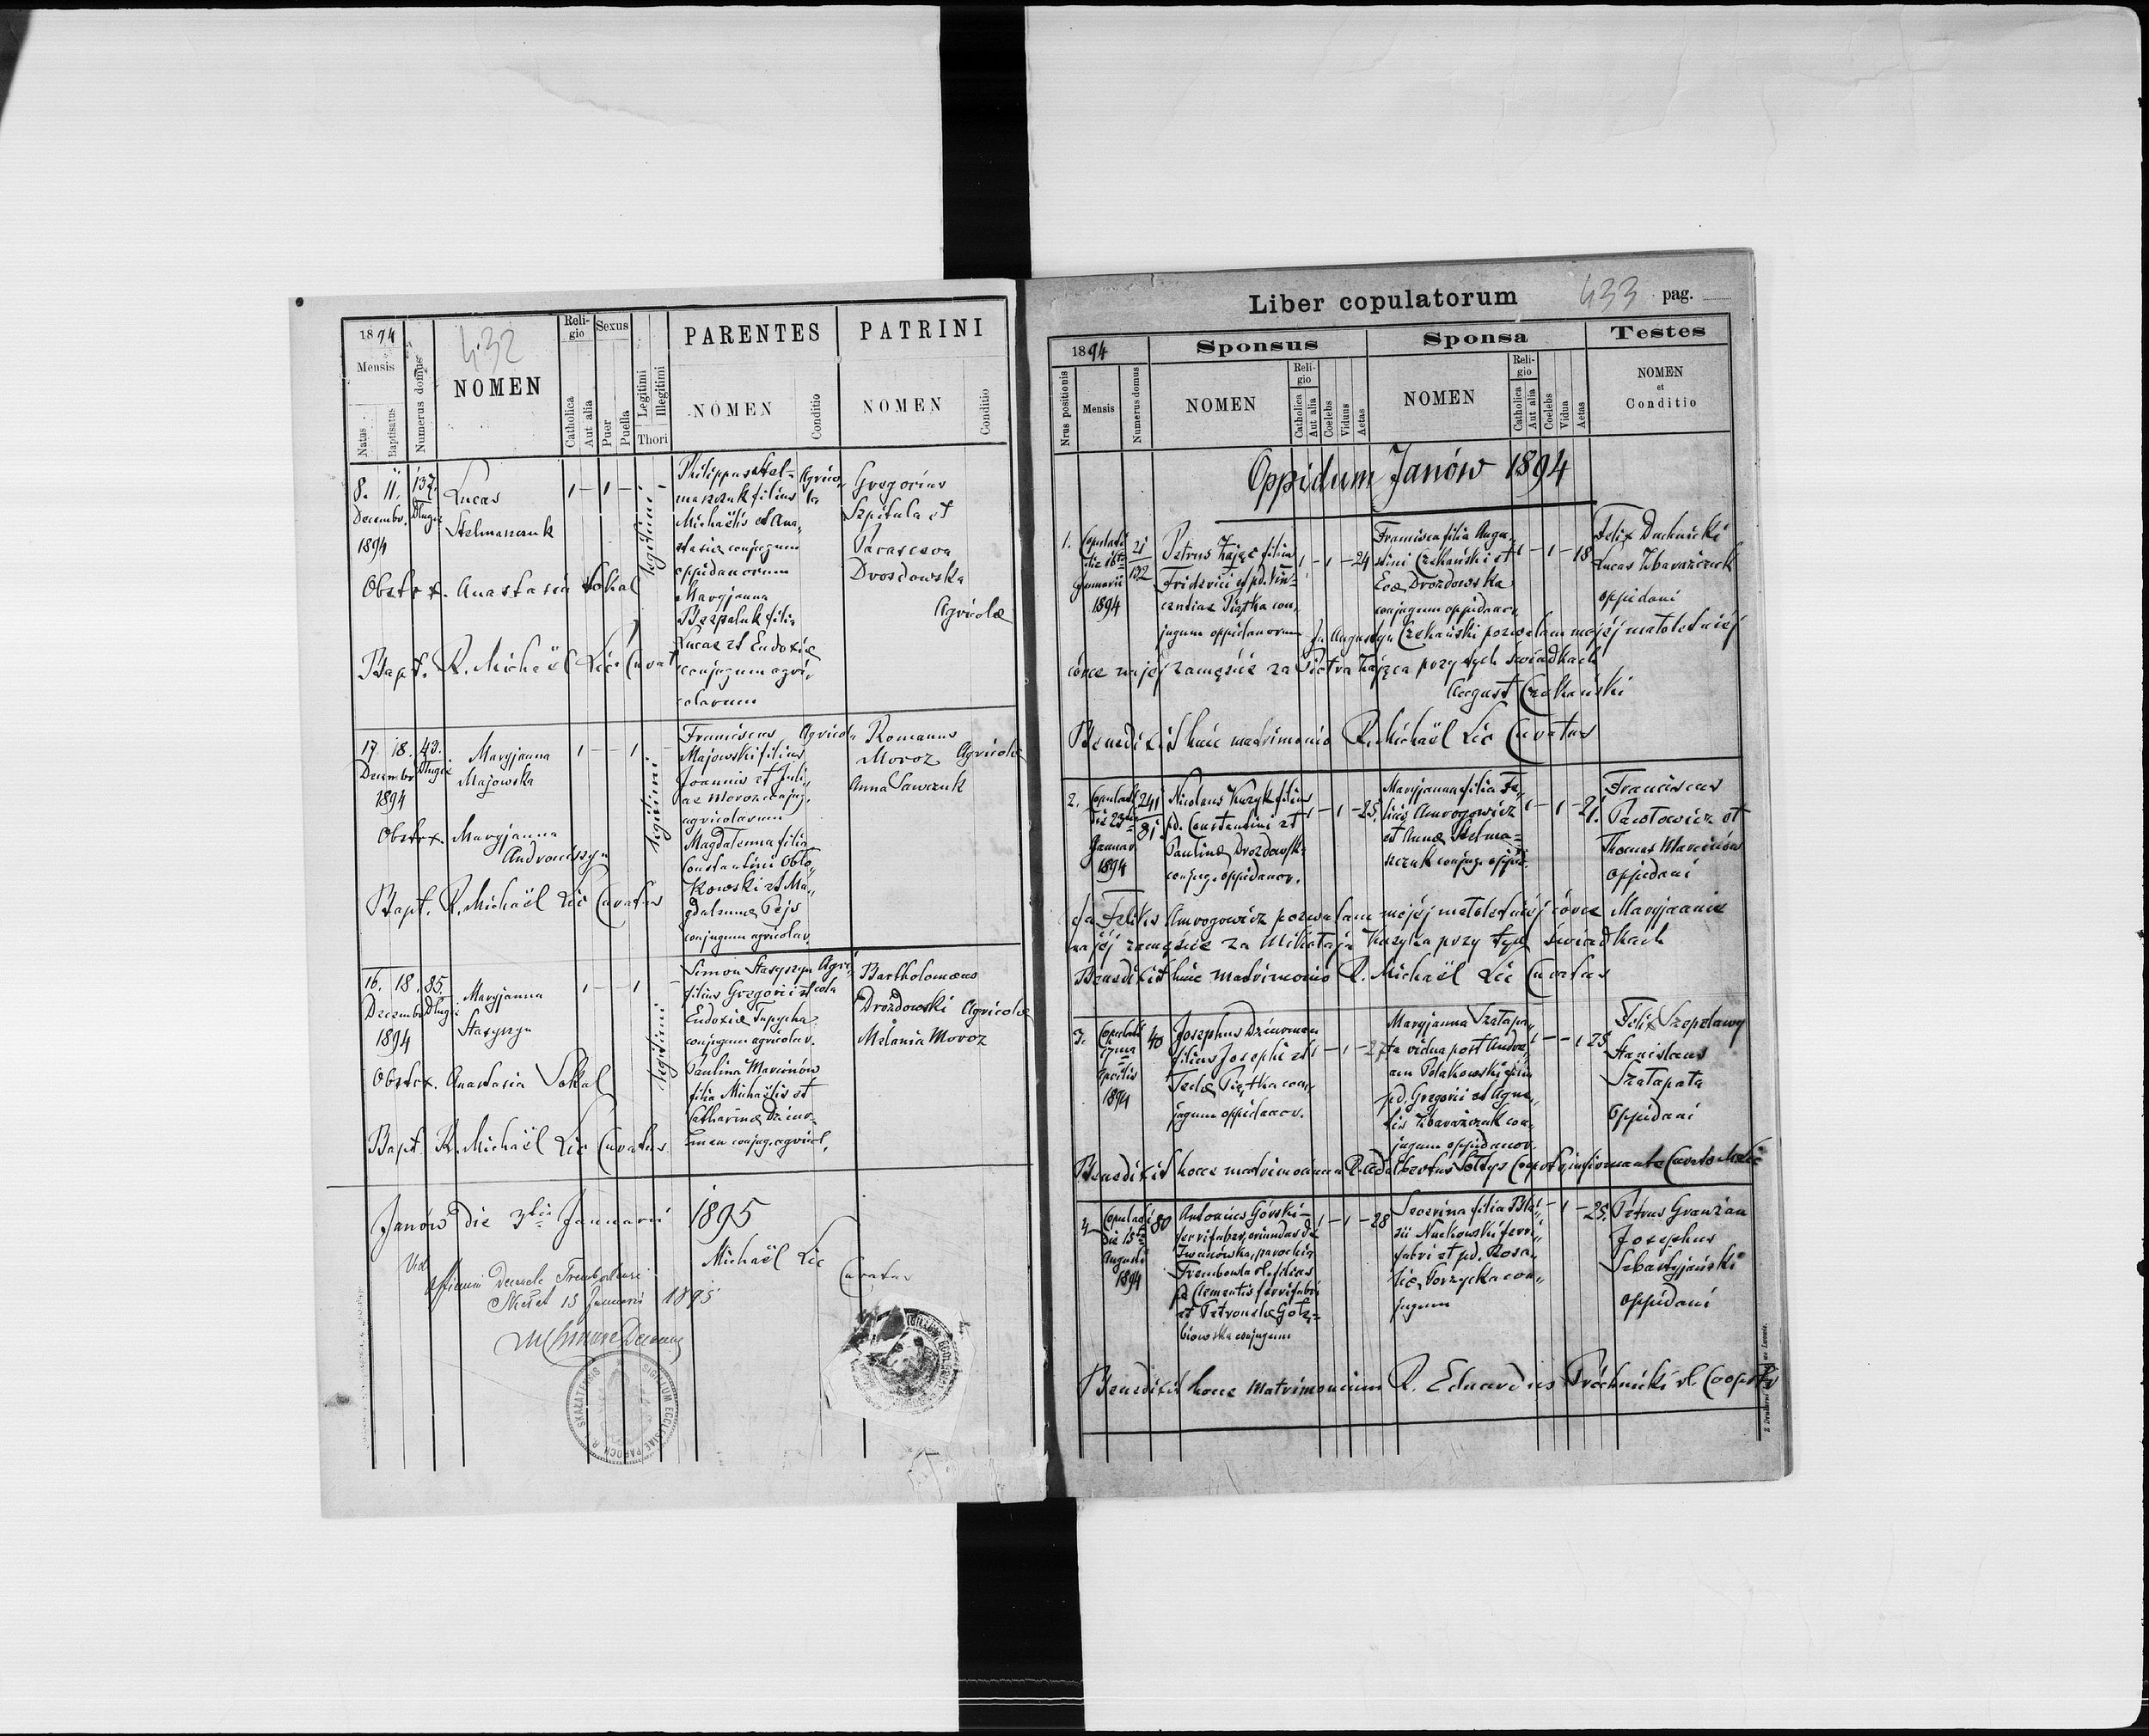 1894
Mensis
Natus
Baptisatus
Numerus domus
432
NOMEN
Reli-
gio
Catholica
Aut alia
Sexus
Puer
Puella
Legitimi
Illegitimi
Thori
PARENTES
NOMEN
Conditio
PATRINI
NOMEN
Conditio
8. 11. 137.
Decembr. Długie
1894
Lucas
Stelmaszczuk
1 - 1 -
legitimi
Philippus Stel-
maszczuk filius
Michaëlis et Ana-
stasiæ conjugum
oppidanorum
Maryjanna
Bezpaluk filia
Lucae et Eudoxiæ
conjugum agri-
colarum
Agrico-
la
Gregorius
Szpitula et
Parasceva
Drozdowska
Agricolæ
Obstetr. Anastasia Sokal
Bapt. R. Michaël Lic Curat
17. 18. 43.
Decembr Długie
1894
Maryjanna
Majowska
1 - - 1
legitimi
Franciscus
Majowski filius
Joannis et Juli-
ae Moroz conjug.
agricolarum
Magdalenna filia
Constantini Obło-
kowski et Ma-
gdalennæ Pejs
conjugum agricolar.
Agricola
Romanus
Moroz Agricolæ
Anna Sawczuk
Obstetr. Maryjanna
Andronisz
Bapt. R. Michaël Lic Curatus
16. 18. 85.
Decembr Długie
1894
Maryjanna
Stasyszyn
1 - - 1 -
legitimi
Simon Stasyszyn
filius Gregorii et
Eudoxiæ Tupycha
conjugum agricolar.
Paulina Marcinów
filia Michaëlis et
Catharinæ Dziur-
man conjug. agricol.
Agri-
cola
Bartholomæus
Drozdowski Agricolæ
Melania Moroz
Obstetr. Anastasia Sokal
Bapt. R. Michaël Lic Curatus
Janów die 3tia Januarii 1895
Michaël Lic
Curatus
Vid
Skałat 15 Januarii 1895
SIGILLUM ECCLESIAE PAROCH. R. SKAŁATENSIS
Liber copulatorum
433 pag.
1894
Nrus positionis
Mensis
Numerus domus
Sponsus
NOMEN
Reli-
gio
Catholica
Aut alia
Coelebs
Viduus
Aetas
Sponsa
NOMEN
Reli-
gio
Catholica
Aut alia
Coelebs
Vidua
Aetas
Testes
NOMEN
et
Conditio
Oppidum Janów 1894
1.
Copulati
die 16ta
Januarii
1894
21
132
Petrus Zając filius
Friderici et pd. Vin-
centiae Piątka con-
jugum oppidanorum
1 - 1 - 24
Francisca filia Augu-
stini Czekański et
Evæ Drozdowska
conjugum oppidanor.
1 - 1 - 18
Felix Duchnicki
Lucas Zbarażczuk
oppidani
Ja Augustyn Czekański pozwalam mojéj małoletniéj
córce na jéj zamęście za Piotra Zająca przy tych świadkach
August Czekański
Benedixit huic matrimonio R. Michaël Lic Curatus
2.
Copulati
die 23tia
Januar.
1894
241
81
Nicolaus Kuzyk filius
pd. Constantini et
Paulinæ Drozdowsk-
conjug. oppidanor.
1 - 1 - 25.
Maryjanna filia Fe-
licis Amrogowicz
et Annæ Stelma-
szczuk conjug. oppid.
1 - 1 - 21.
Franciscus
Pawłowicz et
Thomas Marcinów
oppidani
Ja Feliks Amrogowicz pozwalam mojéj małoletniéj córce Maryjannie
na jéj zamęście za Mikołaja Kuzyka przy tych świadkach
Benedixit huic matrimonio R. Michaël Lic Curatus
3.
Copulati
17ma
Aprilis
1894
40
Josephus Dziurman
filius Josephi et
Teclæ Piątka con-
jugum oppidanor.
1 - 1 - 27
Maryjanna Szałapa-
ta vidua post Andre-
am Polakowski filia
pd. Gregorii et Agne-
tis Zbarażczuk con-
jugum oppidanor.
1 - - 1 25
Felix Szepelawy
Stanislaus
Szałapata
Oppidani
Benedixit hocce matrimonium R. Adalbertus Sołtys Coopr. infirmante Curato M. Lic
4.
Copulati
die 15ta
Augusti
1894
80
Antonius Górski-
ferrifaber, oriundus de
Iwanówka, parochia
Trembowla rl. filius
pd Clementis ferrifabri
et Petronelæ Gołę-
biowska conjugum
1 - 1 - 28
Severina filia Bla-
sii Nuckowski ferri-
fabri et pd. Rosa-
liæ Torzycka con-
jugum
1 - 1 - 25.
Petrus Granzan
Josephus
Sebastyjański
oppidani
Benedixit hocce matrimonium R. Eduardus Próchnicki rl. Cooprtr